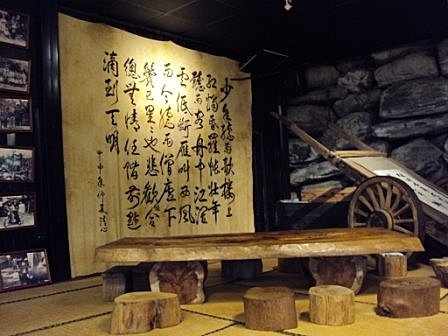 少年聽雨歌樓上
紅燭昏羅帳壯年
聽雨客舟中江闊
雲低斷雁叫西風
而今聽雨僧廬下
鬢已星々也悲歡離合
總無情任階前點
滴到天明
甲申年仲夏